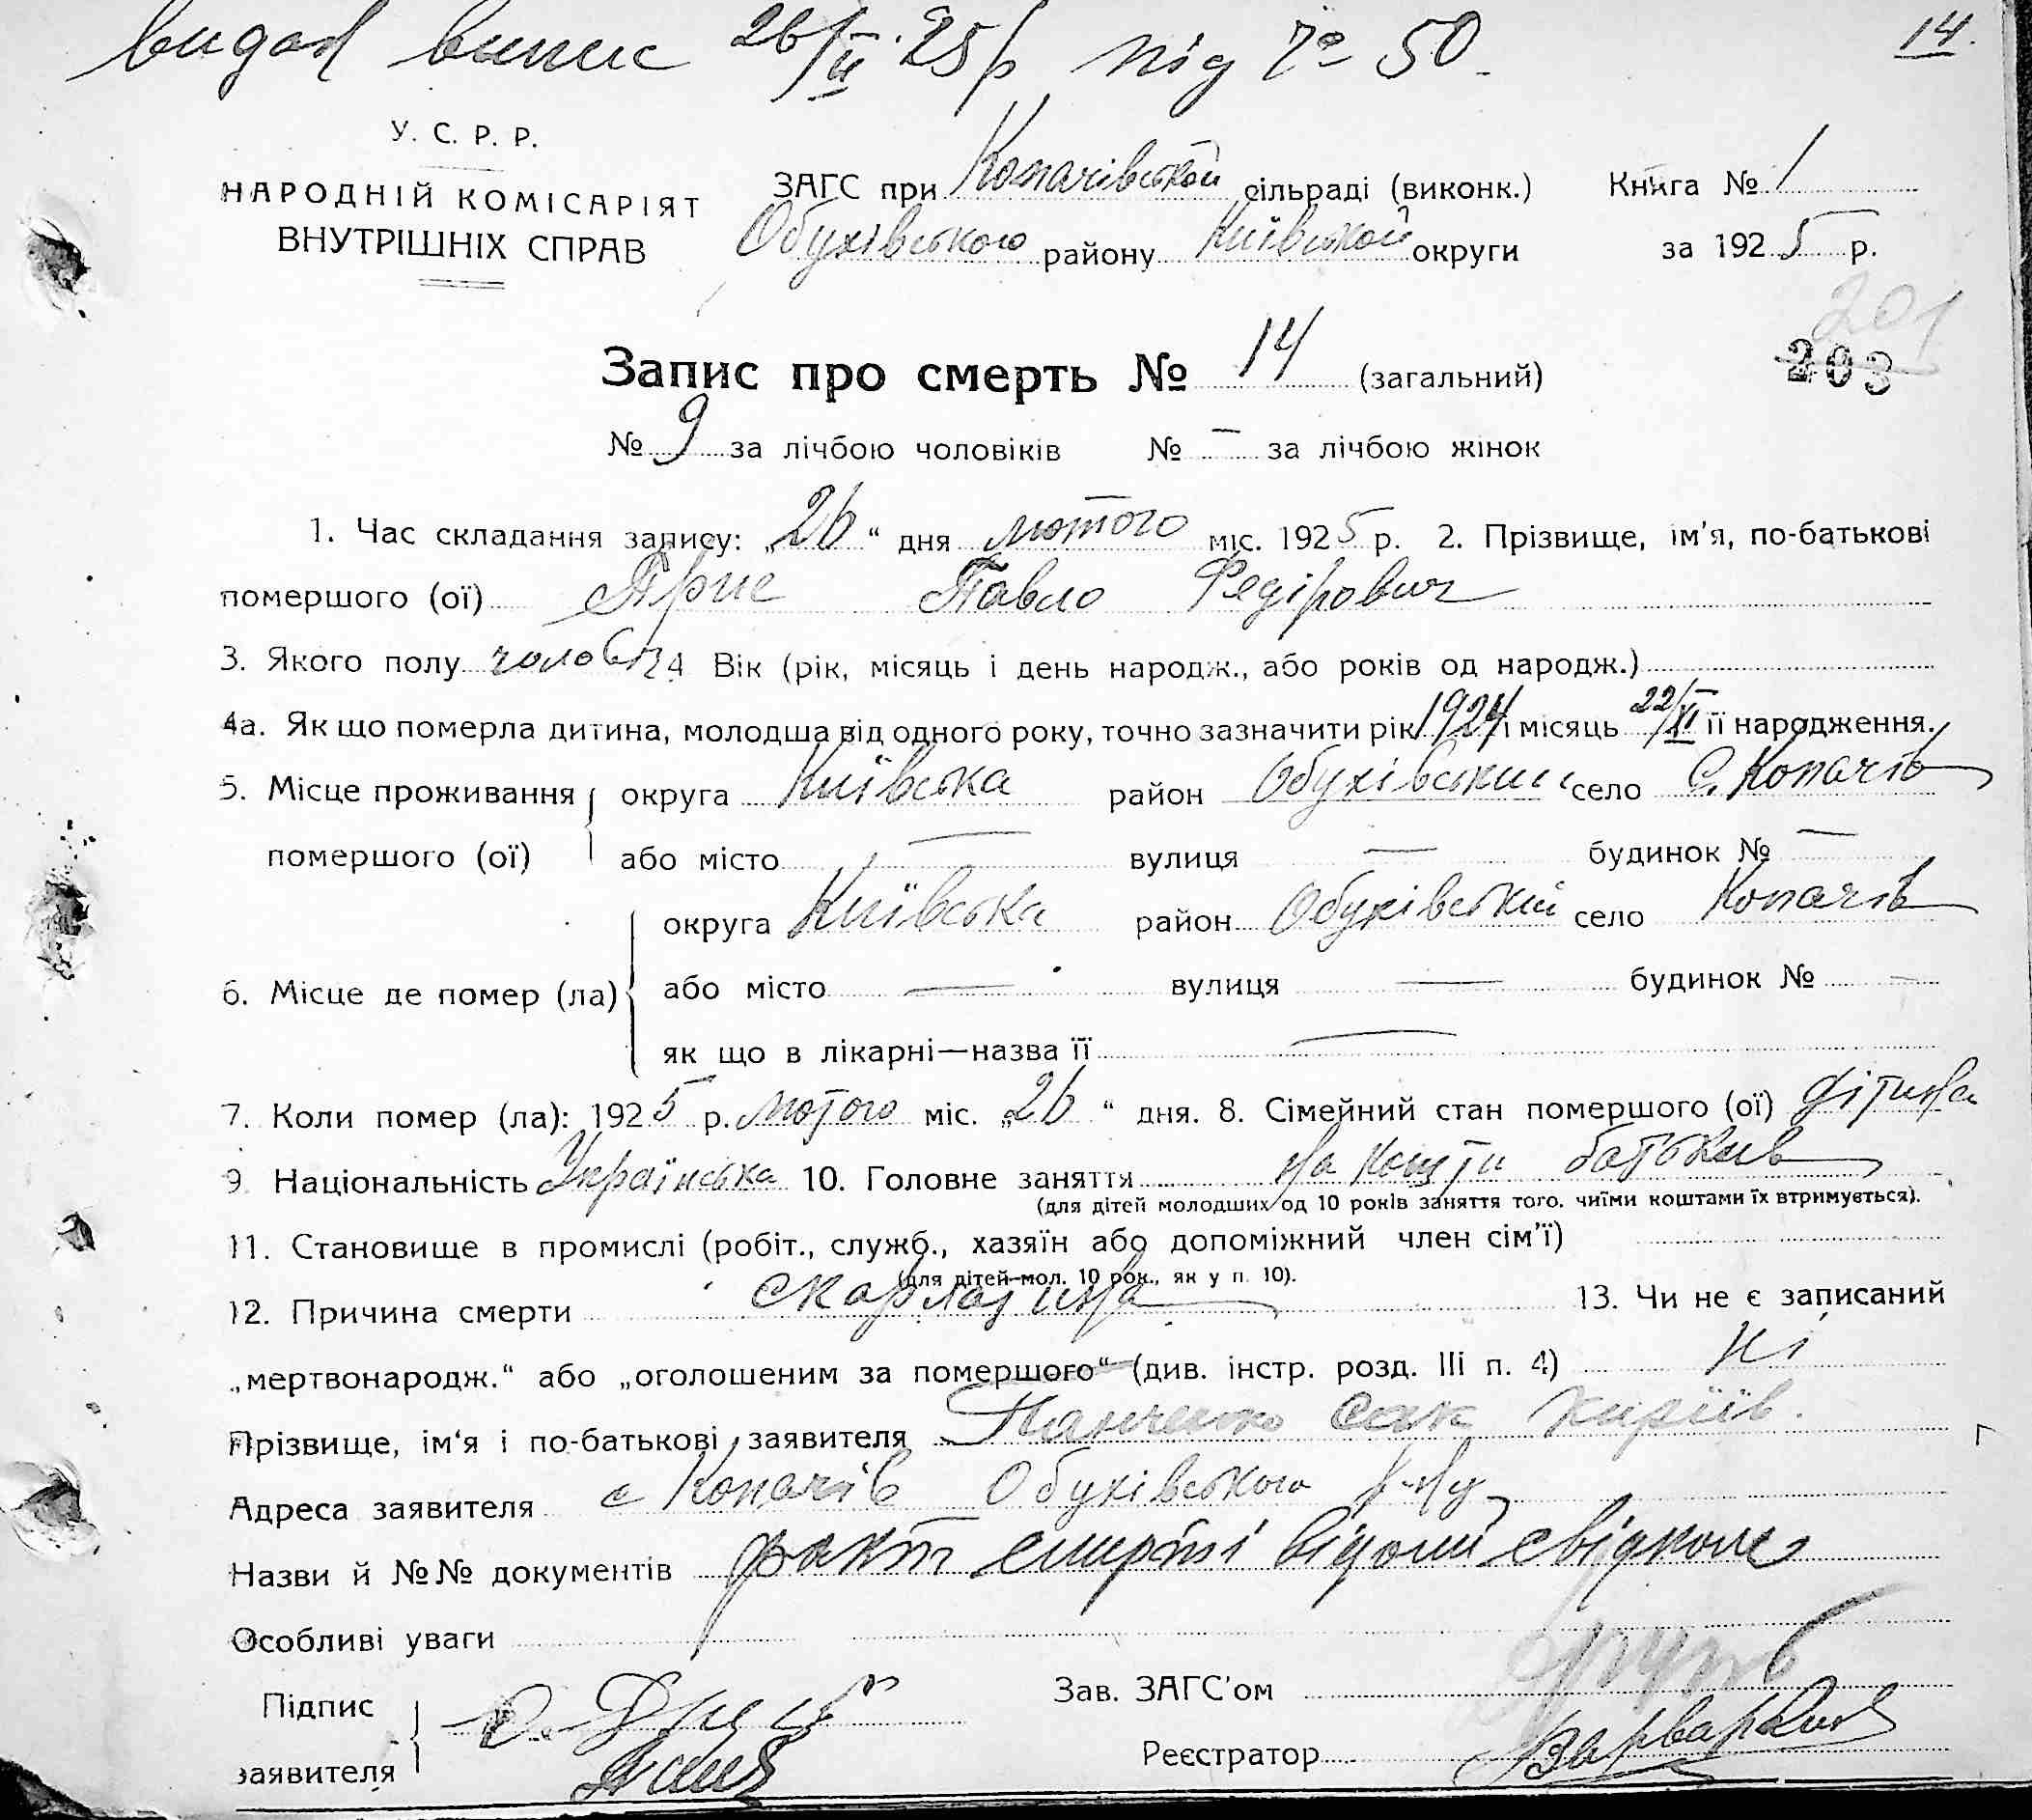 видав випис 26/II 25 р під № 50
14.
У. С. Р. Р.
НАРОДНІЙ КОМІСАРІЯТ
ВНУТРІШНІХ СПРАВ
ЗАГС при Копачівській сільраді (виконк.) Книга № 1
Обухівського району Київської округи за 1925 р.
201
203
Запис про смерть № 14 (загальний)
№ 9 за лічбою чоловіків № — за лічбою жінок
1. Час складання запису: „26“ дня лютого міс. 1925 р. 2. Прізвище, ім'я, по-батькові
помершого (ої) Павло Федірович
3. Якого полу чолов 4 Вік (рік, місяць і день народж., або років од народж.)
4а. Як що померла дитина, молодша від одного року, точно зазначити рік 1924 і місяць 22/XI її народження.
5. Місце проживання округа Київська район Обухівський село С. Копачів
помершого (ої) або місто — вулиця — будинок № —
округа Київська район Обухівський село Копачів
6. Місце де помер (ла) або місто — вулиця — будинок № —
як що в лікарні—назва її —
7. Коли помер (ла): 1925 р. лютого міс. „26“ дня. 8. Сімейний стан помершого (ої) дітина
9. Національність Українська 10. Головне заняття на кошти батьків
(для дітей молодших од 10 років заняття того, чиїми коштами їх втримується).
11. Становище в промислі (робіт., служб., хазяїн або допоміжний член сім'ї)
(для дітей-мол. 10 рок., як у п. 10).
12. Причина смерти скарлатина 13. Чи не є записаний
„мертвонародж.“ або „оголошеним за помершого“ (див. інстр. розд. III п. 4) ні
Прізвище, ім'я і по-батькові заявителя Панченко Сак Киріїв.
Адреса заявителя с Копачів Обухівського р-ну
Назви й №№ документів факт смерті відомий свідкам
Особливі уваги
Підпис
заявителя
Зав. ЗАГС'ом
Реєстратор